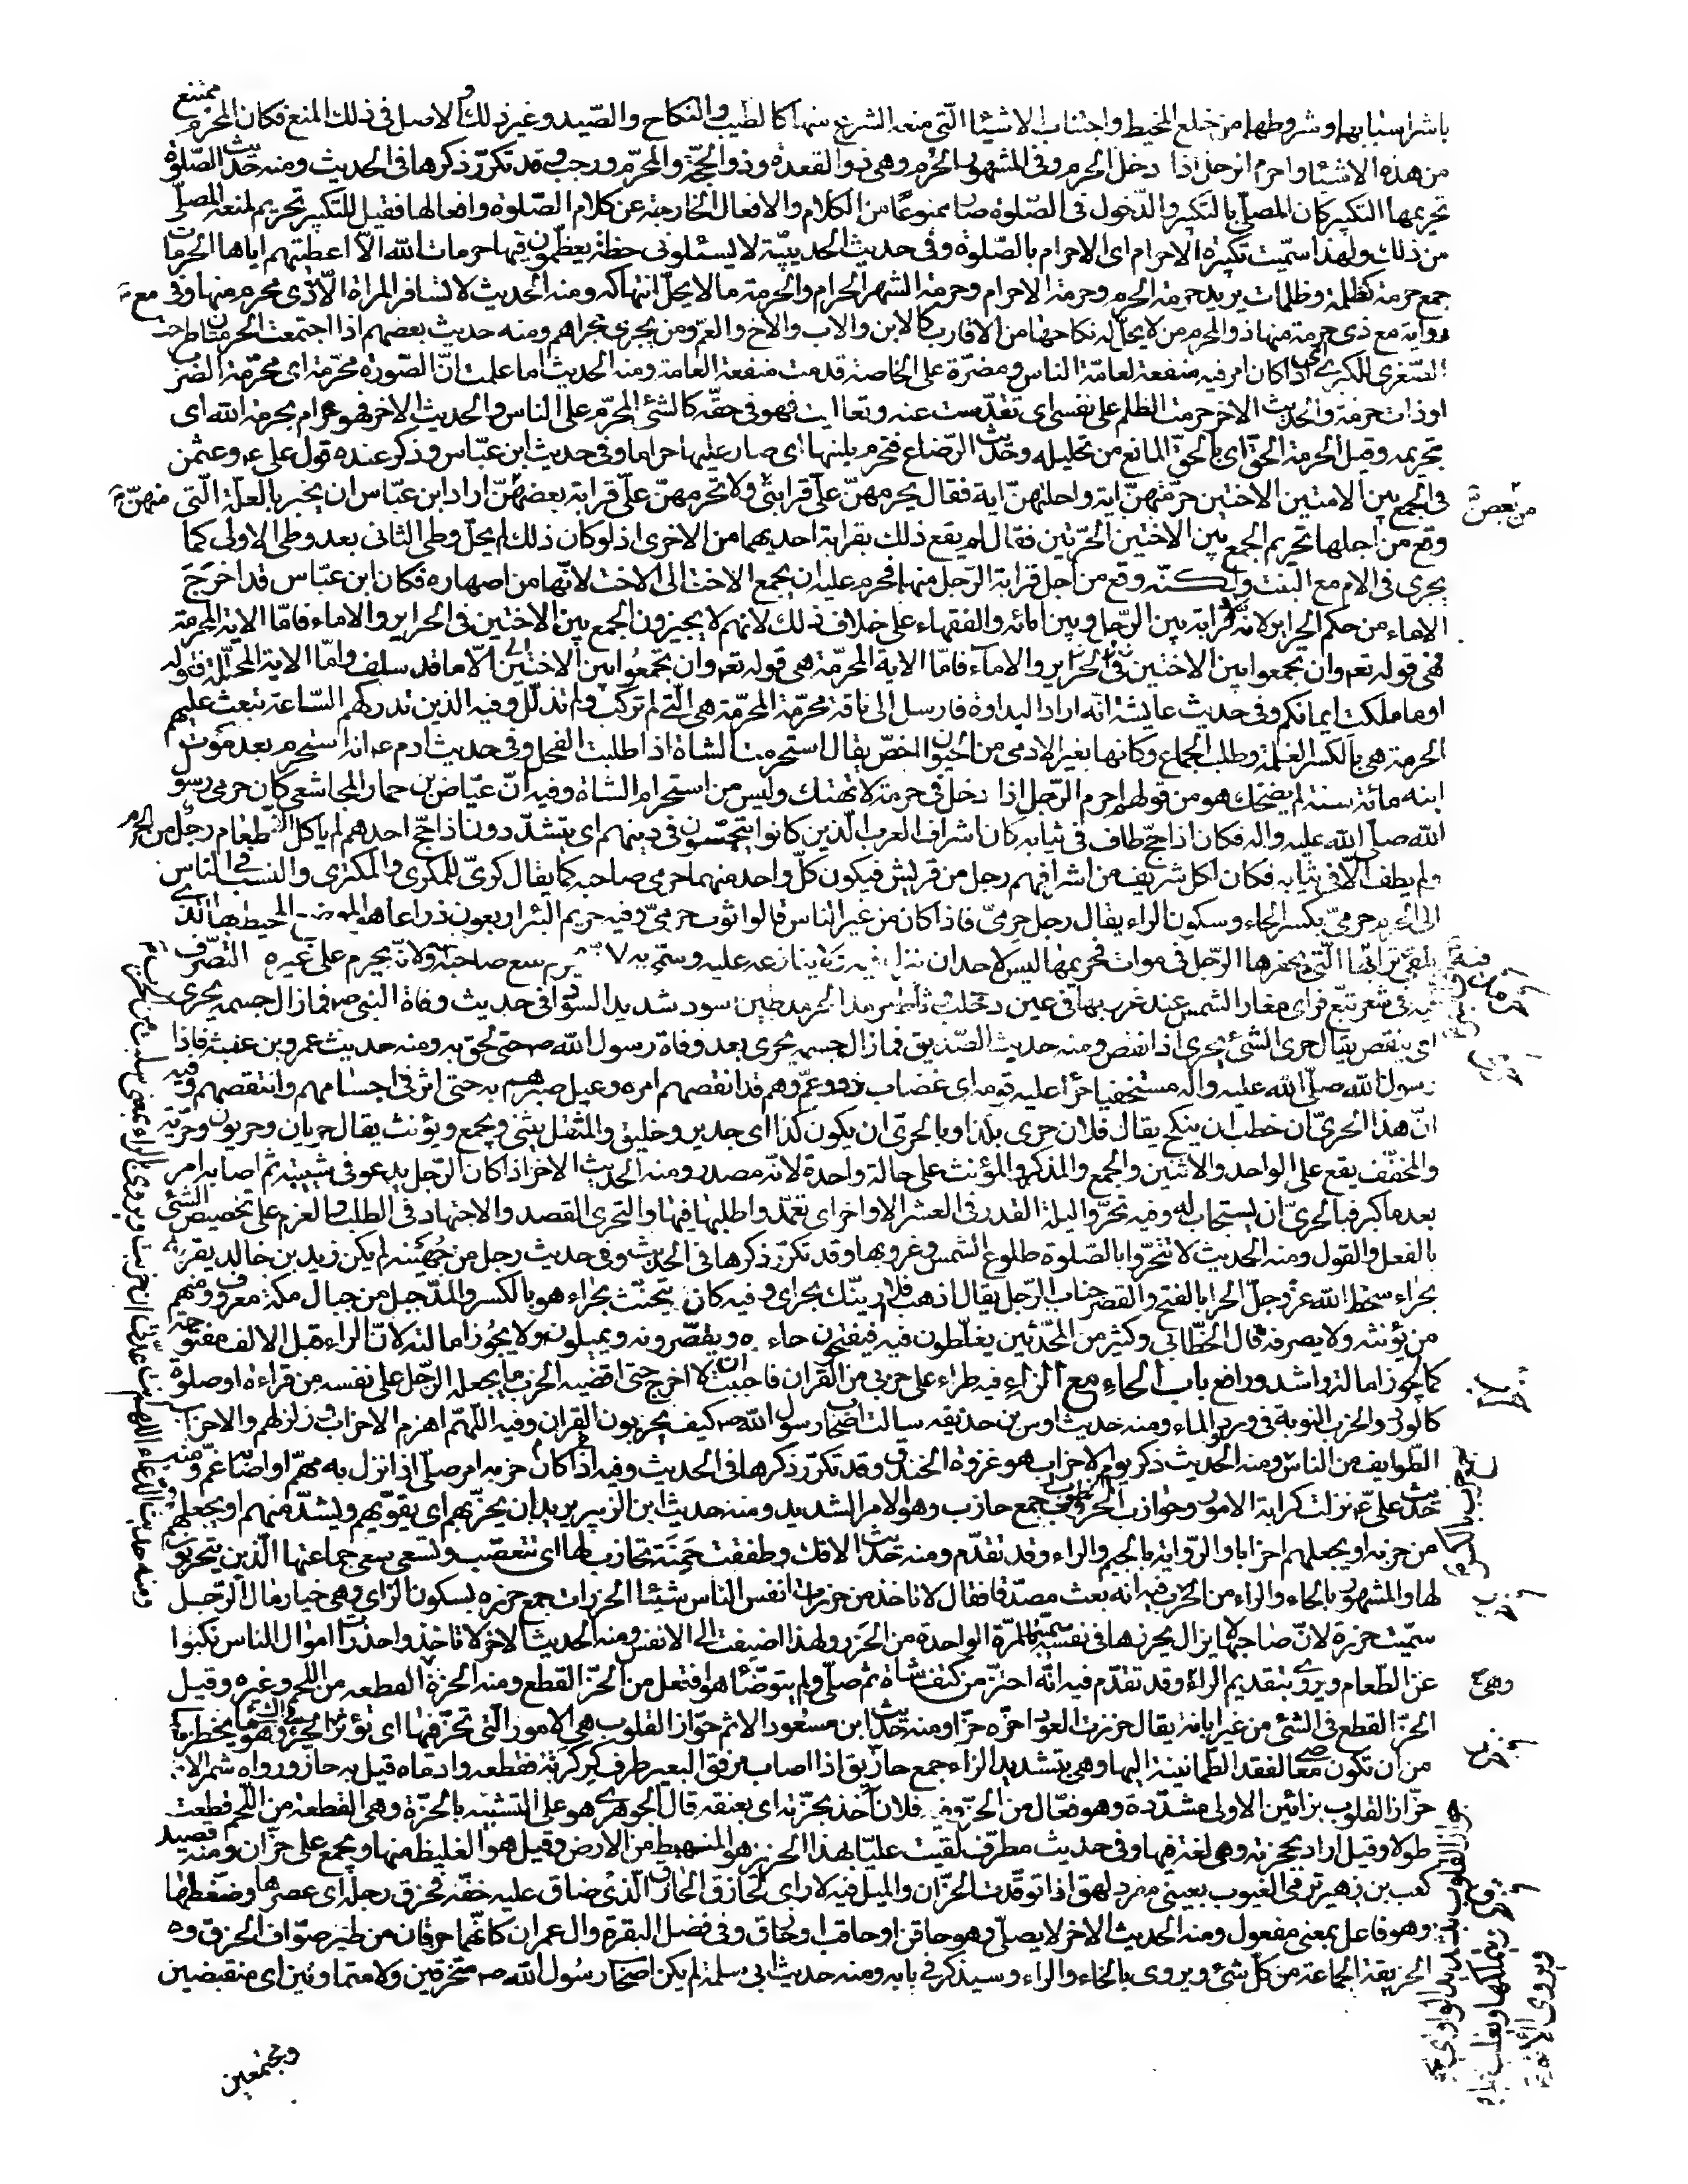 باشر اسبابها وشروطها من خلع المخيط واجتناب الاشياء الّتى منعه الشرع منها كالطيب والنكاح والصّيد وغير ذلك والاصل فى ذلك المنع فكان المحرم ممتنع
من هذه الاشياء واحرم الرجل اذا دخل الحرم وفى الشهور الحرم وهى ذو القعدة وذو الحجّة والمحرّم ورجب وقد تكرّر ذكرها فى الحديث ومنه حديث الصّلوة
تحريمها التكبير كان المصلّى بالتكبير والدّخول فى الصّلوة صار ممنوعًا من الكلام والافعال الخارجة عن كلام الصّلوة وافعالها فقيل للتكبير تحريم لمنعه المصلّى
من ذلك ولهذا سمّيت تكبيرة الاحرام اى الاحرام بالصّلوة وفى حديث الحديبيّة لا يسئلونى خطّة يعظّمون فيها حرمات الله الّا اعطيتهم اياها الحرمات
جمع حرمة كظلمة وظلمات يريد حرمة الحرم وحرمة الاحرام وحرمة الشهر الحرام والحرمة ما لا يحلّ انتهاكه ومنه الحديث لا تسافر المراة الّا مع ذى محرم منها وفى
رواية مع ذى حرمة منها ذو المحرم من لا يحلّ له نكاحها من الاقارب كالابن والاب والاخ والعمّ ومن يجرى مجراهم ومنه حديث بعضهم اذا اجتمعت الحرمتان طرحت
الصّغرى للكبرى اى اذا كان امر فيه منفعة لعامّة الناس ومضرّة على الخاصة قدمت منفعة العامّة ومنه الحديث اما علمت انّ الصّورة محرّمة اى محرّمة الضرب
اوذات حرمة والحديث الاخر حرمت الظلم على نفسى اى تقدّست عنه وتعاليت فهو فى حقّه كالشئ المحرّم على الناس والحديث الاخر فهو حرام بحرمة الله اى
بتحريمه وقيل الحرمة الحقّ اى بالحقّ المانع من تحليله وحديث الرّضاع فتحرم بلبنها اى صار عليها حراما وفى حديث ابن عبّاس وذكر عنده قول على ع وعثمن
فى الجمع بين الامتين الاختين حرّمتهنّ اية واحلتهنّ اية فقال يحرمهنّ علىّ قرابتى ولا تحرمهنّ علىّ قرابة بعضهنّ من بعض اراد ابن عبّاس ان يخبر بالعلّة الّتى
وقع من اجلها تحريم الجمع بين الاختين الحرّتين فقال لم يقع ذلك بقرابة احديهما من الاخرى اذ لو كان ذلك لم يحلّ وطى الثانى بعد وطى الاولى كما
يجرى فى الام مع البنت ولكنّه وقع من اجل قرابة الرّجل منها فحرم عليه ان يجمع الاخت الى الاخت لانّها من اصهاره فكان ابن عبّاس قد اخرج
الاماء من حكم الحراير لانه لا قرابة بين الرّجل وبين امائه والفقهاء على خلاف ذلك لانهم لا يجيزون الجمع بين الاختين فى الحراير والاماء فامّا الاية المحرمة
فهى قوله تعه وان تجمعوا بين الاختين الّا ما قد سلف وامّا الاية المحلّلة فقوله
او ما ملكت ايمانكم وفى حديث عايشة انّه اراد البداوة فارسل الى ناقة محرّمة المحرّمة هى الّتى لم تركب ولم تذلّل وفيه الذين تدركهم السّاعة تبعث عليهم
الحرمة هى بالكسر الغلمة وطلب الجماع وكانها بغير الادمى من الحيوان اخصّ يقال استحرمت الشاة اذا طلبت الفحل وفى حديث ادم ع انه استحرم بعد موت
ابنه مائة سنة لم يضحك هو من قولهم احرم الرّجل اذا دخل فى حرمة لا تهتك وليس من استحرام الشاة وفيه انّ عياض بن حمار المجاشعى كان حرمى رسو
الله صلى الله عليه واله فكان اذا حجّ طاف فى ثيابه كان اشراف العرب الّذين كانوا يتحمّسون فى دينهم اى يتشدّدون اذا حجّ احدهم لم ياكل الّا طعام رجل من الحرم
ولم يطف الّا فى ثيابه فكان لكل شريف من اشرافهم رجل من قريش فيكون كلّ واحد منهما حرمى صاحبه كما يقال كرىّ للمكرى والمكترى والنسب فى الناس
الى الحرم حرمىّ بكسر الحاء وسكون الراء يقال رجل حرمىّ فاذا كان من غير الناس قالوا ثوب حرمىّ وفيه حريم البئر اربعون ذراعا هو الموضع المحيط بها الّذى
يلقى ترابها الّتى يحفرها الرّجل فى موات فحريمها ليس لاحد ان ينزل فيه ولا ينازعه عليه وسمّى به لانّه يحرم منع صاحبه ولانّه يحرم على غيره التصرّف
فيه فى شعر تبّع فراى مغار الشمس عند غروبها فى عين ذى خلب وثاط حرمد الحرمد طين اسود شديد السّواد فى حديث وفاة النبى ص فما زال جسمه يحرى
اى ينقص يقال حرى الشئ يحرى اذا نقص ومنه حديث الصّديق فما زال جسمه يحرى بعد وفاة رسول الله ص حتى لحق به ومنه حديث عمرو بن عنبثه فاذا
رسول الله صلّى الله عليه واله مستخفيا حراء عليه قومه اى غضاب ذوو غمّ وهم قد انقصهم امره وعيل صبرهم به حتى اثر فى اجسامهم وانتقصهم وفيه
انّ هذا الحرىّ ان خطب ان ينكح يقال فلان حرى بكذا وبالحرىّ ان يكون كذا اى جدير وخليق والمثقل يثنى ويجمع ويؤنث يقال حريان وحريون وحريّة
والمخفّف يقع على الواحد والاثنين والجمع والمذكر والمؤنث على حالة واحدة لانّه مصدر ومنه الحديث الاخر اذا كان الرّجل يدعو فى شبيبته ثم اصابه امر
بعد ما كبر فبالحرىّ ان يستجاب له وفيه تحرّوا ليلة القدر فى العشر الاواخر اى تعمّدوا طلبها فيها والتحرى القصد والاجتهاد فى الطلب والعزم على تخصيص الشئ
بالفعل والقول ومنه الحديث لا تتحرّوا بالصّلوة طلوع الشمس وغروبها وقد تكرّر ذكرها فى الحديث وفى حديث رجل من جهينة لم يكن زيد بن خالد يقربه
بحراه سخط الله عزّ وجلّ الحرا بالفتح والقصر جناب الرّجل يقال اذهب فلا ارينّك بحراى وفيه كان يتحنّث بحراء هو بالكسر والمدّ جبل من جبال مكة معروف ومنهم
من يؤنثه ولا يصرفه قال الخطّابى وكثير من المحدّثين يغلّطون فيه فيفتحون حاءه ويقصّرونه ويميلونه ولا يجوز امالته لانّ الراء قبل الالف مفتوحة
كما لا يجوز امالة راشد ورافع باب الحاء مع الزاء فيه طراء على حزبى من القران فاحببت ان لا اخرج حتى اقضيه الحزب ما يجعله الرّجل على نفسه من قراءة او صلوة
كالورد والحزب النوبة فى ورود الماء ومنه حديث اوس بن حذيفه سالت اصحاب رسول الله ص كيف يحزبون القران وفيه اللّهمّ اهزم الاحزاب وزلزلهم والاحزاب
الطّوايف من الناس ومنه الحديث ذكر يوم الاحزاب هو غزوة الخندق وقد تكرّر ذكرها فى الحديث وفيه اذا كان حزبه امر صلّى اى اذا نزل به مهمّ او اصابه غمّ ومنه
حديث علىّ ع نزلت كراية الامور وحوازب الخطوب جمع حازب وهو الامر الشديد ومنه حديث ابن الزبير يريد ان يحزّبهم اى يقوّيهم ويشدّ منهم او يجعلهم
من حزبه او يجعلهم احزابا والرّواية بالجيم والراء وقد تقدّم ومنه حديث الافك وطفقت حمنة تحازب لها اى تتعصّب وتسعى سعى جماعتها الّذين يتحزبون
لها والمشهور بالحاء والراء من الحرب فيه انه بعث مصدّقا فقال لا تاخذ من حزرات انفس الناس شيئا الحزرات جمع حزرة بسكون الزاى وهى خيار مال الرّجل
سمّيت حزرة لانّ صاحبها لا يزال يحزرها فى نفسه سمّيت بالمرّة الواحدة من الحزر ولهذا اضيفت الى الانفس ومنه الحديث الاخر لا تاخذوا حزرات اموال الناس نكبوا
عن الطّعام ويروى بتقديم الراء وقد تقدّم فيه انّه احتزّ من كتف شاة ثم صلّى ولم يتوضّا هو افتعل من الحزّ القطع ومنه الحزّة القطعه من اللحم وغيره وقيل
الحزّ القطع فى الشئ من غير ابانة يقال حززت العود احزّه حزّا ومنه حديث ابن مسعود الاثم حوّاز القلوب هى الامور الّتى تحزّ فيها اى تؤثر كما يؤثر الحزّ فى الشئ وهو ما يخطر فيها
من ان تكون معاصى لفقد الطّمانينة اليها وهى بتشديد الزاء جمع حازّ يقال اذا اصاب مرفق البعير طرف كركرته فقطعه وادماه قيل به حاز ورواه شمر الاثم
حزّاز القلوب بزائين الاولى مشدّدة وهو فعّال من الحزّ وفيه فلان اخذ بحزّته اى بعنقه قال الجوهرى هو على التشبيه بالحزّة وهى القطعة من اللّحم قطعت
طولا وقيل اراد بحجزته وهى لغة فيها وفى حديث مطرّف لقيت عليّا بهذا الحزيز هو المنهبط من الارض وقيل هو الغليظ منها ويجمع على حزّان ومنه قصيد
كعب بن زهير ترمى الغيوب بعينى مفرد لهق اذا توقّدت الحزّان والميل فيه لا راى لحازق الحازق الّذى ضاق عليه خفّه فحزق رجله اى عصرها وضغطها
وهو فاعل بمعنى مفعول ومنه الحديث الاخر لا يصلّى وهو حاقن او حاقب او حازق وفى فضل البقرة وال عمران كانّهما حزقان من طير صوّاف الحزق وه
الحزيقة الجماعة من كلّ شئ ويروى بالخاء والراء وسيذكر فى بابه ومنه حديث ابى سلمة لم يكن اصحاب رسول الله ص متحزقين ولا متماوتين اى منقبضين
ومجتمعين